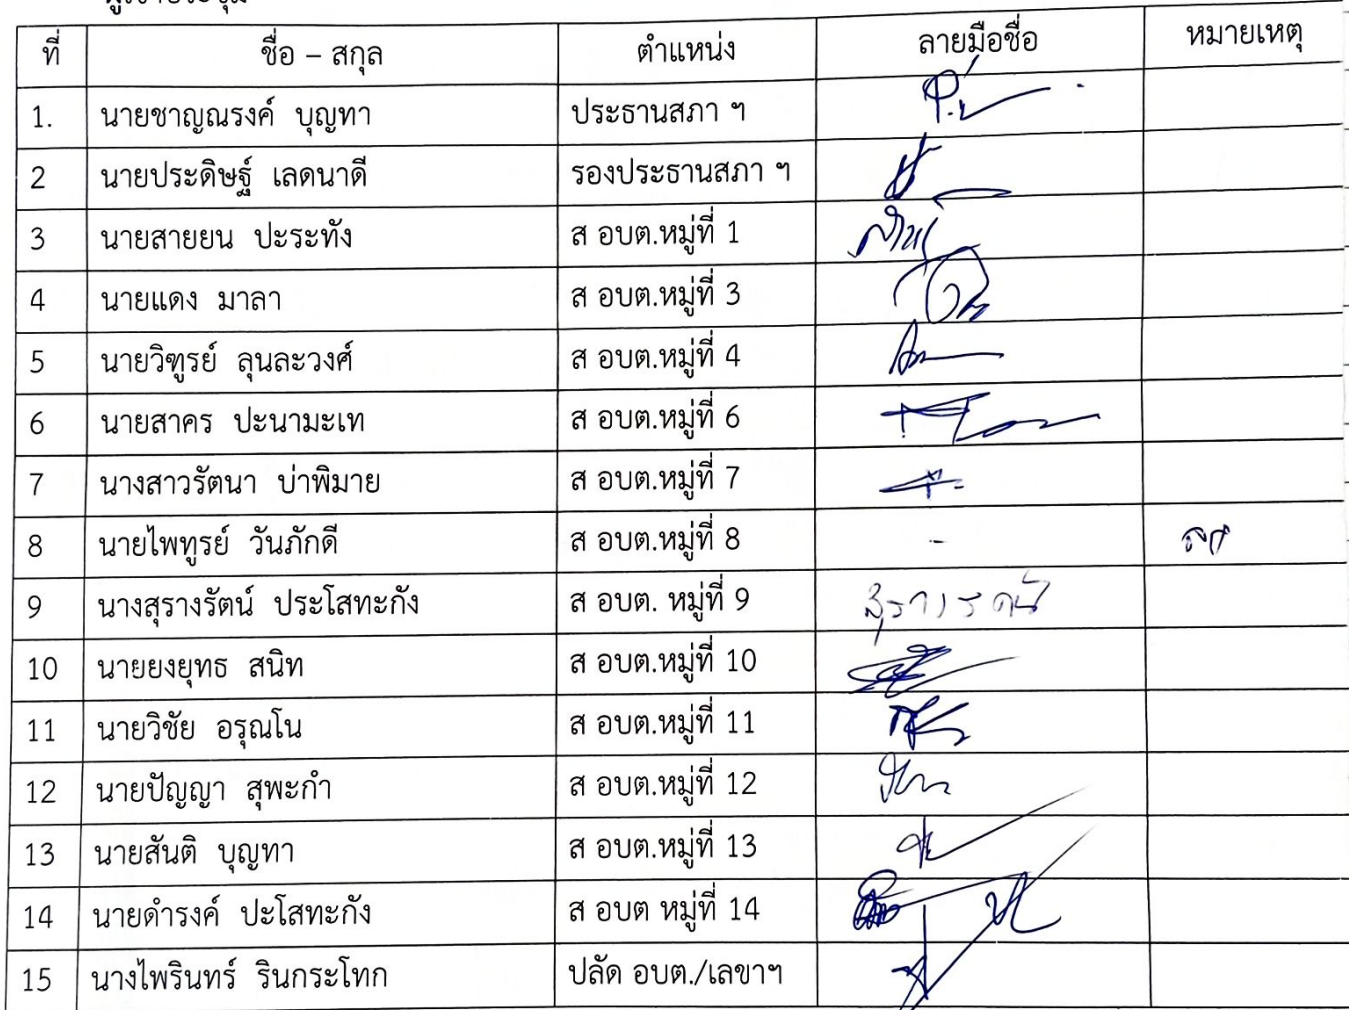 ที่ ชื่อ – สกุล ตำแหน่ง ลายมือชื่อ หมายเหตุ
1. นายชาญณรงค์ บุญทา ประธานสภา ฯ
2 นายประดิษฐ์ เลดนาดี รองประธานสภา ฯ
3 นายสายยน ปะระทัง ส อบต.หมู่ที่ 1
4 นายแดง มาลา ส อบต.หมู่ที่ 3
5 นายวิฑูรย์ ลุนละวงศ์ ส อบต.หมู่ที่ 4
6 นายสาคร ปะนามะเท ส อบต.หมู่ที่ 6
7 นางสาวรัตนา บ่าพิมาย ส อบต.หมู่ที่ 7
8 นายไพทูรย์ วันภักดี ส อบต.หมู่ที่ 8 -
9 นางสุรางรัตน์ ประโสทะกัง ส อบต. หมู่ที่ 9 สุรางรัตน์
10 นายยงยุทธ สนิท ส อบต.หมู่ที่ 10
11 นายวิชัย อรุณโน ส อบต.หมู่ที่ 11
12 นายปัญญา สุพะกำ ส อบต.หมู่ที่ 12
13 นายสันติ บุญทา ส อบต.หมู่ที่ 13
14 นายดำรงค์ ปะโสทะกัง ส อบต หมู่ที่ 14
15 นางไพรินทร์ รินกระโทก ปลัด อบต./เลขาฯ